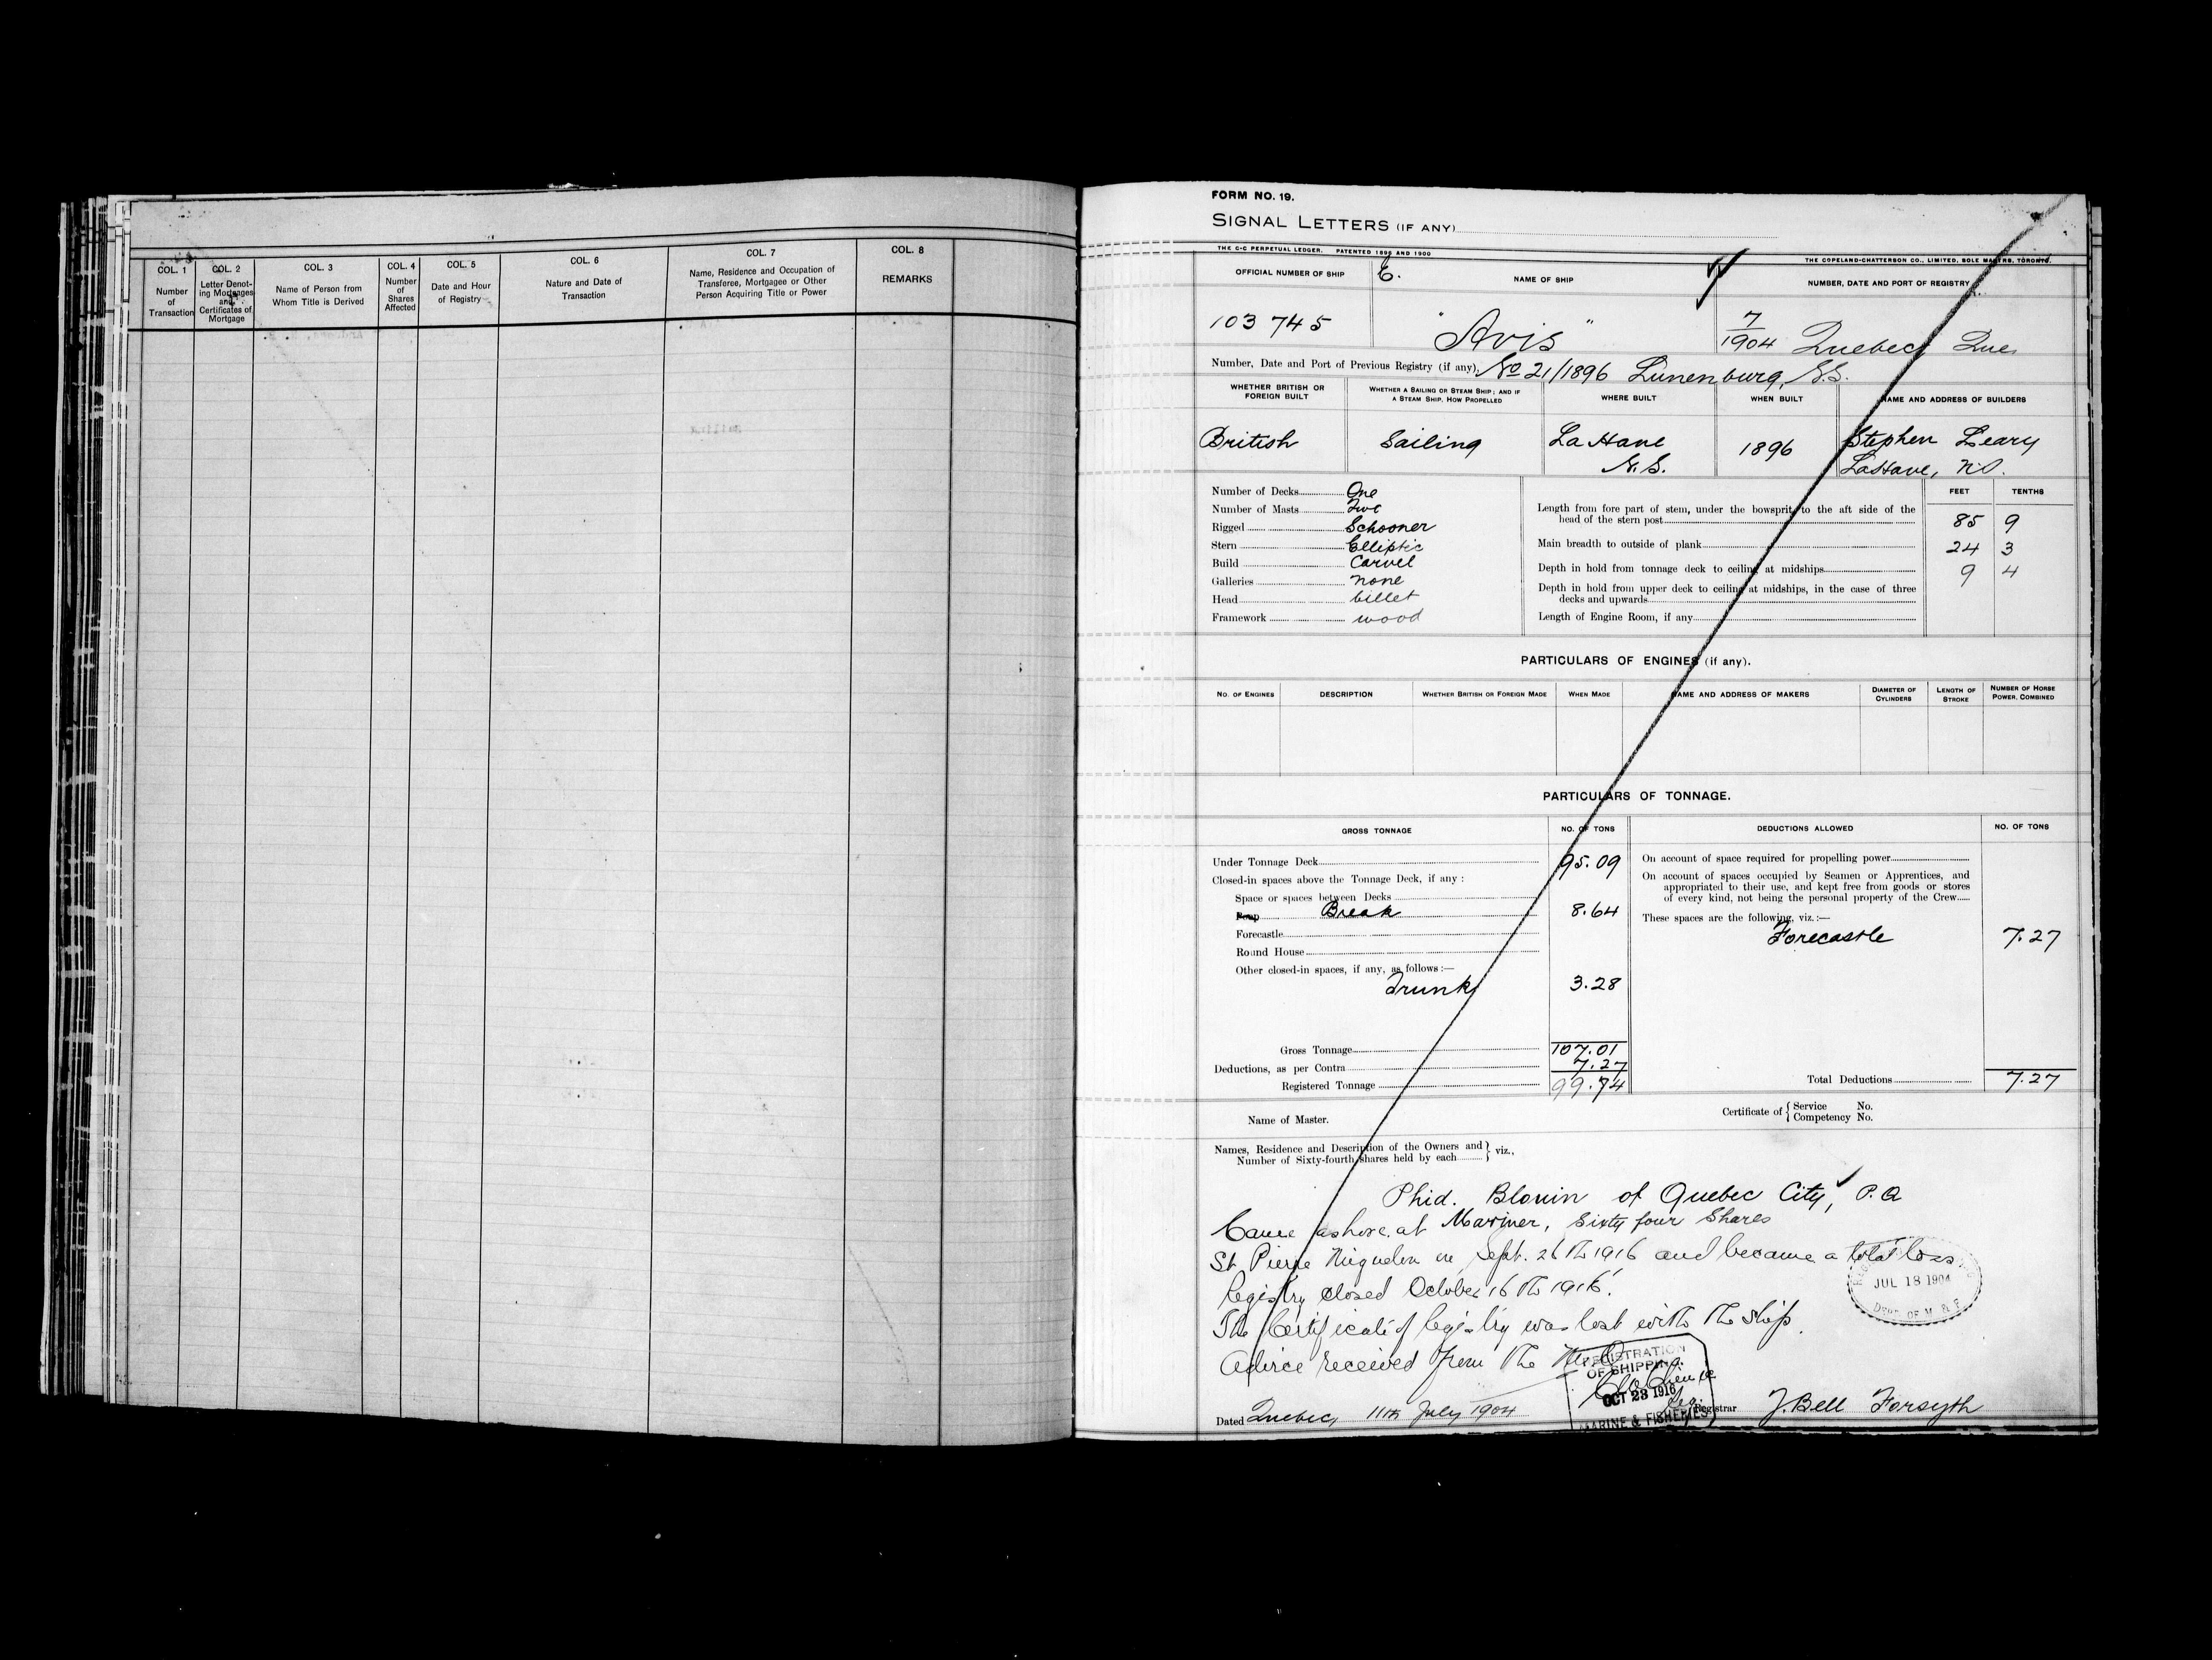 COL. 1 COL. 2 COL. 3 COL. 4 COL. 5 COL. 6 COL. 7 COL. 8
Number of Transaction
Letter Denoting Mortgages and Certificates of Mortgage
Name of Person from Whom Title is Derived
Number of Shares Affected
Date and Hour of Registry
Nature and Date of Transaction
Name, Residence and Occupation of Transferee, Mortgagee or Other Person Acquiring Title or Power
REMARKS
FORM NO. 19.
SIGNAL LETTERS (IF ANY)
THE C-C PERPETUAL LEDGER. PATENTED 1896 AND 1900
THE COPELAND-CHATTERSON CO., LIMITED, SOLE MAKERS, TORONTO.
OFFICIAL NUMBER OF SHIP E. NAME OF SHIP NUMBER, DATE AND PORT OF REGISTRY
103745 "Avis" 7/1904 Quebec, Que
Number, Date and Port of Previous Registry (if any), No 21/1896 Lunenburg, N.S.
WHETHER BRITISH OR FOREIGN BUILT
WHETHER A SAILING OR STEAM SHIP; AND IF A STEAM SHIP, HOW PROPELLED
WHERE BUILT
WHEN BUILT
NAME AND ADDRESS OF BUILDERS
British Sailing LaHave 1896 Stephen Leary
N.S. LaHave, N.S.
FEET TENTHS
Number of Decks One
Number of Masts Two
Rigged Schooner
Stern Elliptic
Build Carvel
Galleries none
Head billet
Framework wood
Length from fore part of stem, under the bowsprit, to the aft side of the
head of the stern post 85 9
Main breadth to outside of plank 24 3
Depth in hold from tonnage deck to ceiling at midships 9 4
Depth in hold from upper deck to ceiling at midships, in the case of three
decks and upwards
Length of Engine Room, if any
PARTICULARS OF ENGINES (if any).
NO. OF ENGINES DESCRIPTION WHETHER BRITISH OR FOREIGN MADE WHEN MADE NAME AND ADDRESS OF MAKERS DIAMETER OF CYLINDERS LENGTH OF STROKE NUMBER OF HORSE POWER, COMBINED
PARTICULARS OF TONNAGE.
GROSS TONNAGE NO. OF TONS DEDUCTIONS ALLOWED NO. OF TONS
Under Tonnage Deck 95.09
Closed-in spaces above the Tonnage Deck, if any:
Space or spaces between Decks
Poop Break 8.64
Forecastle
Round House
Other closed-in spaces, if any, as follows:—
Trunk 3.28
Gross Tonnage 107.01
Deductions, as per Contra 7.27
Registered Tonnage 99.74
On account of space required for propelling power
On account of spaces occupied by Seamen or Apprentices, and
appropriated to their use, and kept free from goods or stores
of every kind, not being the personal property of the Crew
These spaces are the following, viz.:—
Forecastle 7.27
Total Deductions 7.27
Name of Master.
Certificate of { Service No.
Competency No.
Names, Residence and Description of the Owners and
Number of Sixty-fourth shares held by each } viz.,
Phid. Blouin of Quebec City, P.Q
Came ashore at Mariner, Sixty four Shares
St Pierre Miquelon on Sept. 26th 1916 and became a total loss
Registry closed October 16th 1916.
The Certificate of Registry was lost with the Ship.
Advice received from the
JUL 18 1904
DEPT. OF M. & F.
REGISTRATION
OF SHIPPING
OCT 23 1916
MARINE & FISHERIES
Dated Quebec, 11th July 1904 Registrar J. Bell Forsyth